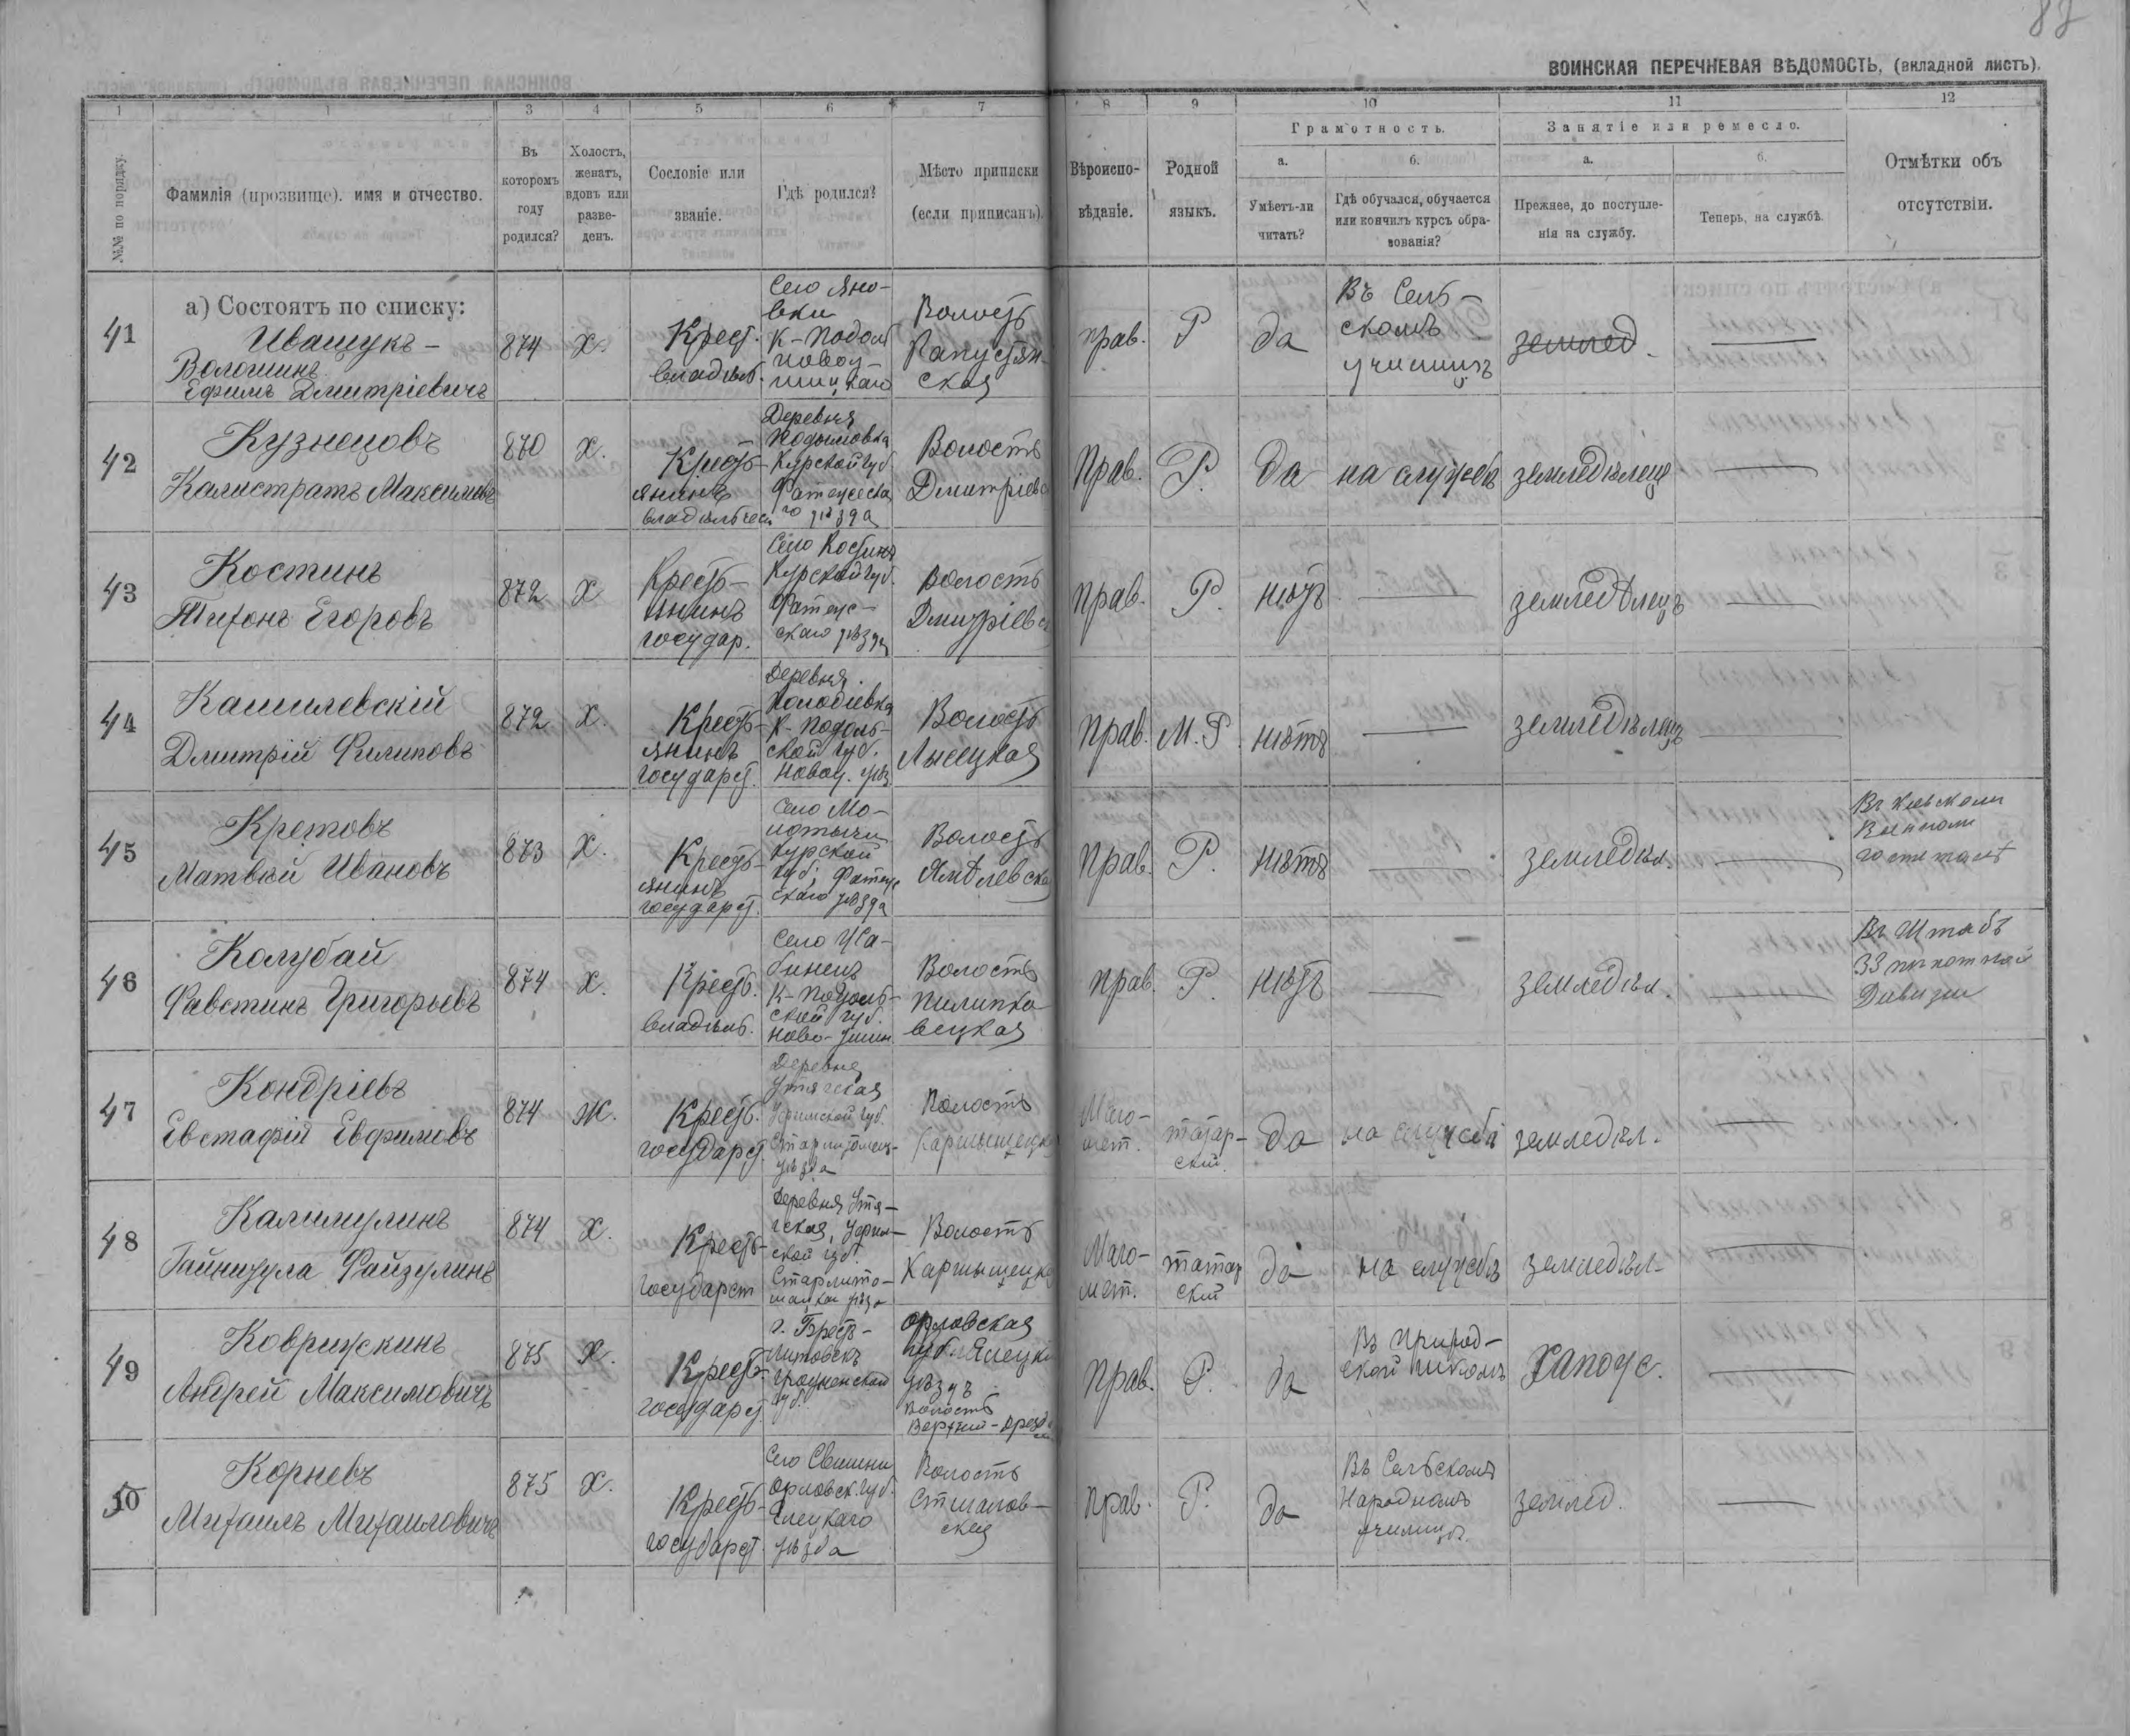 87
ВОИНСКАЯ ПЕРЕЧНЕВАЯ ВѢДОМОСТЬ, (вкладной листъ).
1 1 3 4 5 6 7 8 9 10 11 12
№№ по порядку.
Фамилія (прозвище). имя и отчество.
Въ которомъ году родился?
Холостъ, женатъ, вдовъ или разведенъ.
Сословіе или званіе.
Гдѣ родился?
Мѣсто приписки (если приписанъ).
Вѣроисповѣданіе.
Родной языкъ.
Грамотность.
а. Умѣетъ-ли читать?
б. Гдѣ обучался, обучается или кончилъ курсъ образованія?
Занятіе или ремесло.
а. Прежнее, до поступленія на службу.
б. Теперь, на службѣ.
Отмѣтки объ отсутствіи.
а) Состоятъ по списку:
41
Иващукъ –
Волошинъ
Ефимъ Дмитріевичъ
874
Х.
Крест.
владѣл.
Село Яно-
вки
К-Подол
Новоу-
шицкаго
Волость
прав.
Р
да
Въ Сель-
скомъ
училищѣ
землед.
42
Кузнецовъ
Калистратъ Максимовъ
870
Х.
Кресть-
янинъ
Деревня
Курской губ
го уѣзда
Волость
Прав.
Р.
да
на службѣ
земледѣлецъ
43
Костинъ
Тихонъ Егоровъ
872
Х
Кресть-
янинъ
государ.
Село Костина
Курской губ.
Фатеж-
скаго уѣзда
Волость
Прав.
Р.
нѣтъ
земледѣлецъ
44
Кашилевскій
Дмитрій Филиповъ
872
Х.
Кресть-
янинъ
государст.
Деревня
К-Подоль-
ской губ.
Новоу. уѣз
Волость
Лысецкая
Прав.
М.Р.
нѣтъ
земледѣлецъ
45
Кретовъ
Матвѣй Ивановъ
873
Х.
Кресть-
янинъ
государст.
Село Мо-
Курской
губ. Фатеж
скаго уѣзда
Волость
Прав.
Р.
нѣтъ
земледѣл.
Въ Кіевском
Военном
госпиталѣ
46
Колубай
Фавстинъ Григорьевъ
874
Х.
Крест.
владѣл.
К-Подоль-
ской губ.
Ново-Ушиц.
Волость
Пилипко-
вецкая
прав.
Р.
нѣтъ
земледѣл.
Въ Штабѣ
33 пѣхотной
Дивизіи
47
Кондріевъ
Евстафій Евфимовъ
874
Ж.
Крест.
государст.
Деревня
Уфимской губ.
уѣзда
Волость
Маго-
мет.
татар-
скій.
да
на службѣ
земледѣл.
48
Калимулинъ
Гайнизула Файзулинъ
874
Х.
Кресть-
государст
Деревня Утя-
гская, Уфим-
ской губ.
Волость
Маго-
мет.
татар
скій
да
на службѣ
земледѣл.
49
Коврижкинъ
Андрей Максимовичъ
875
Х.
Кресть-
государст.
г. Брест-
Литовскъ
Гродненской
губ.
Орловская
губ. Елецкій
уѣздъ
Волость
Прав.
Р.
да
Въ Город-
ской школѣ
Сапож.
50
Корневъ
Михаилъ Михаиловичъ
875
Х.
Кресть-
государст.
Орловск. губ.
Елецкаго
уѣзда
Волость
прав.
Р.
да
Въ Сельскомъ
Народномъ
училищѣ.
землед.